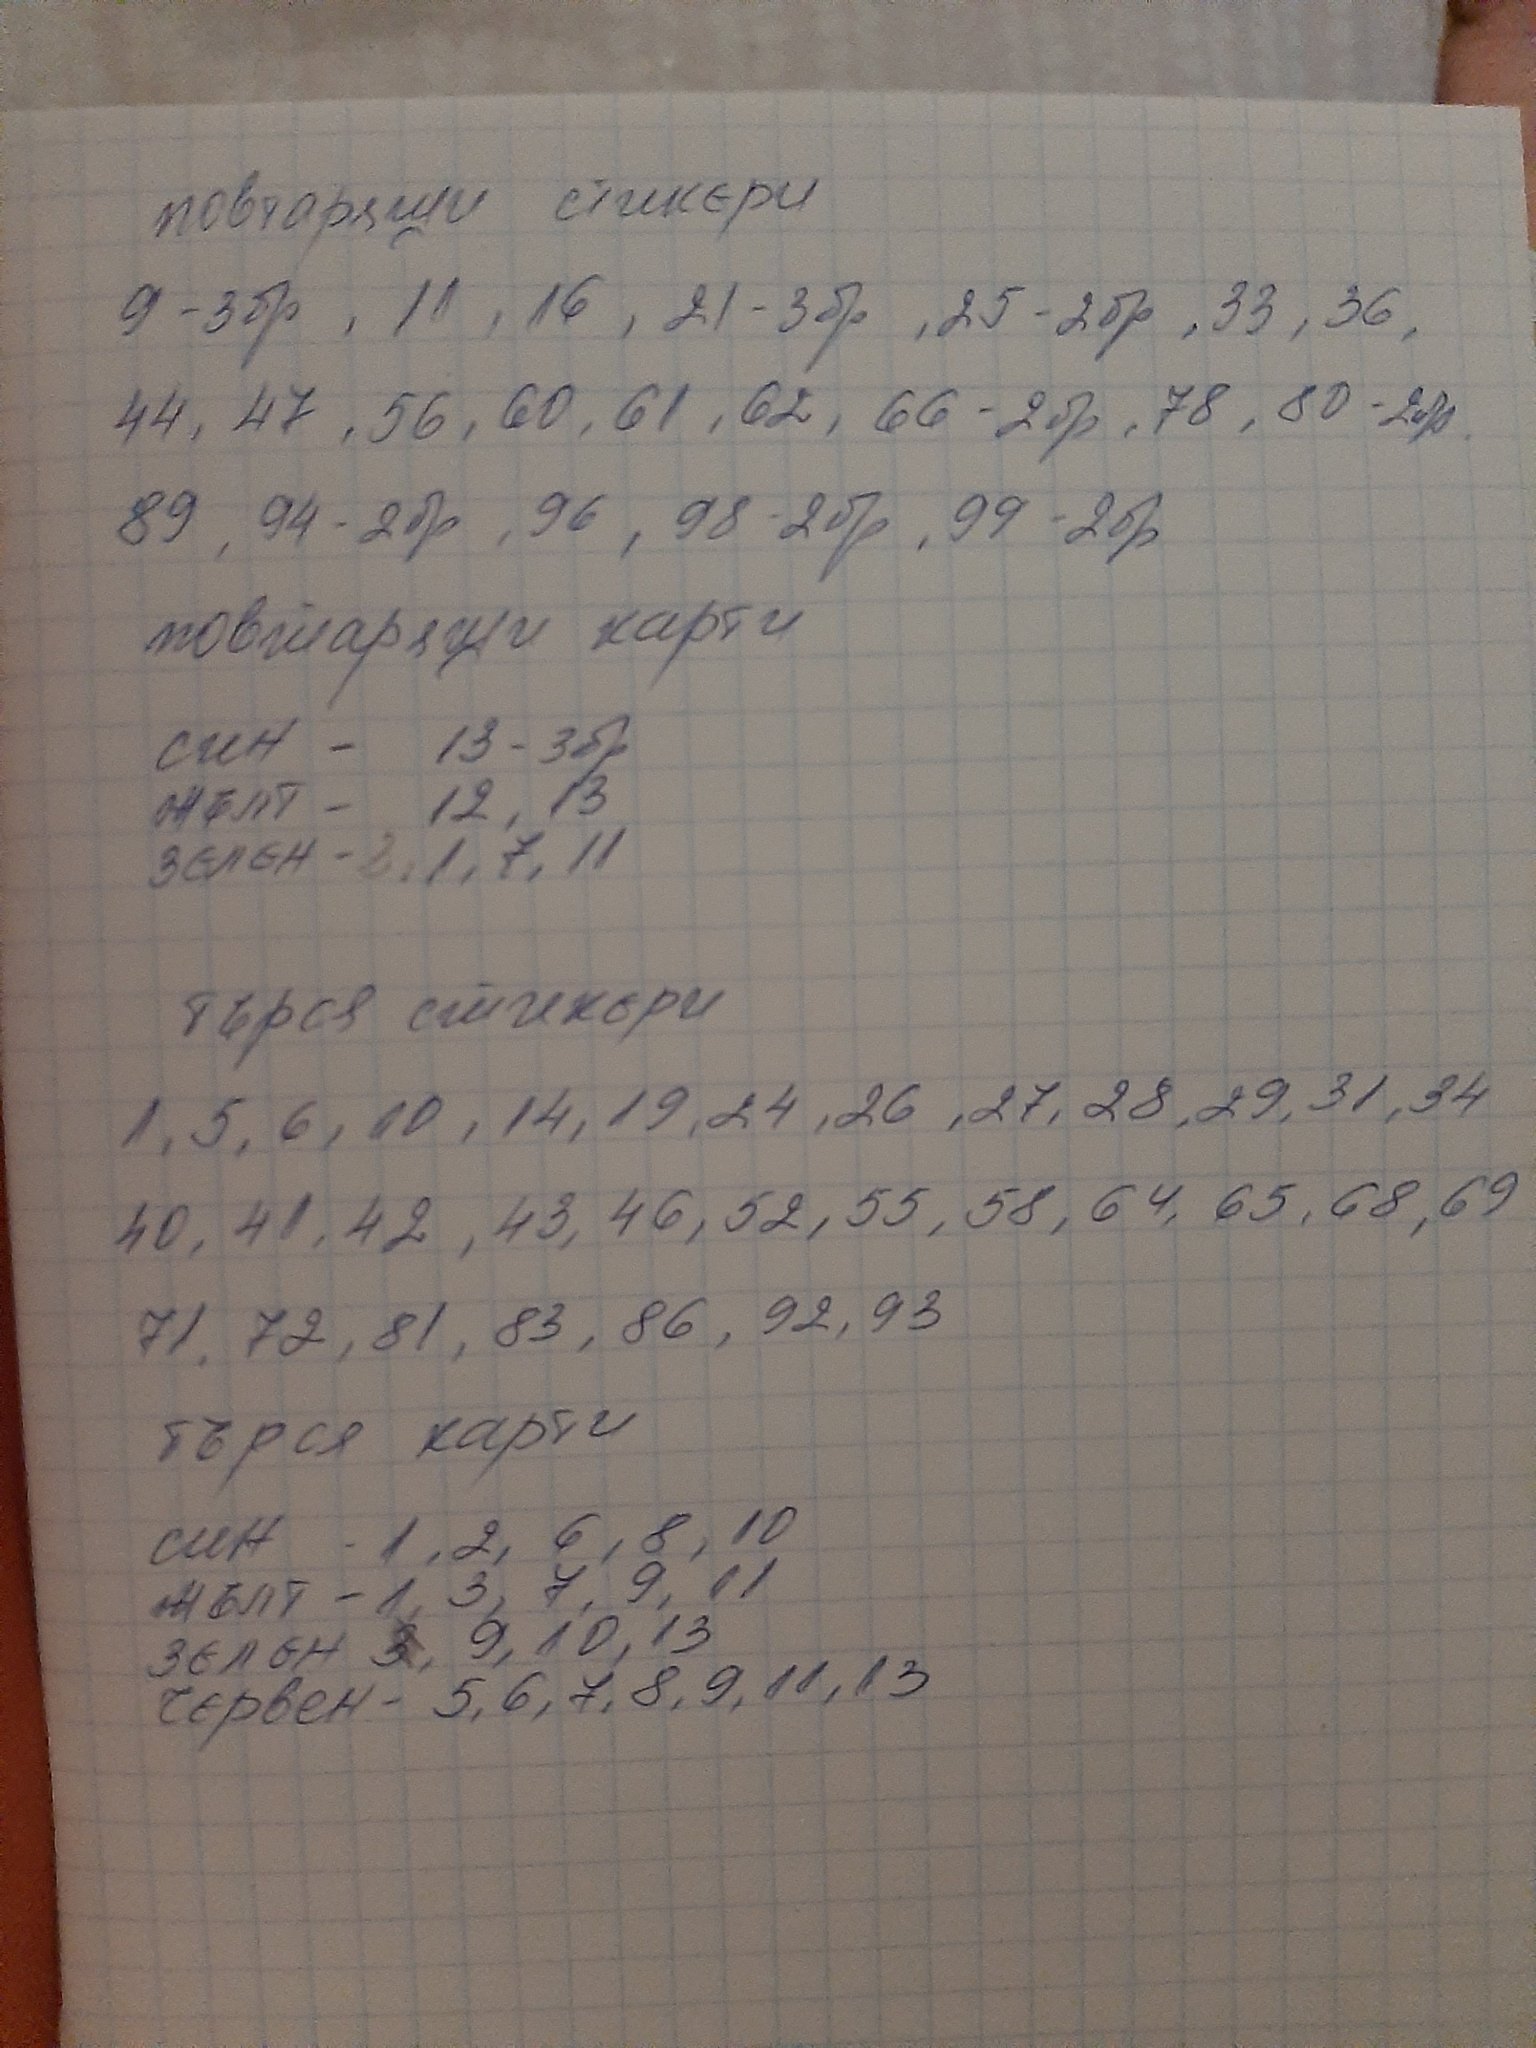 повтарящи стикери
9-3бр, 11, 16, 21-3бр, 25-2бр, 33, 36,
44, 47, 56, 60, 61, 62, 66-2бр, 78, 80-2бр.
89, 94-2бр, 96, 98-2бр, 99-2бр
повтарящи карти
син - 13-3бр
жълт - 12, 13
зелен - 1, 7, 11
търся стикери
1, 5, 6, 10, 14, 19, 24, 26, 27, 28, 29, 31, 34
40, 41, 42, 43, 46, 52, 55, 58, 64, 65, 68, 69
71, 72, 81, 83, 86, 92, 93
търся карти
син - 1, 2, 6, 8, 10
жълт - 1, 3, 7, 9, 11
зелен 9, 10, 13
червен - 5, 6, 7, 8, 9, 11, 13